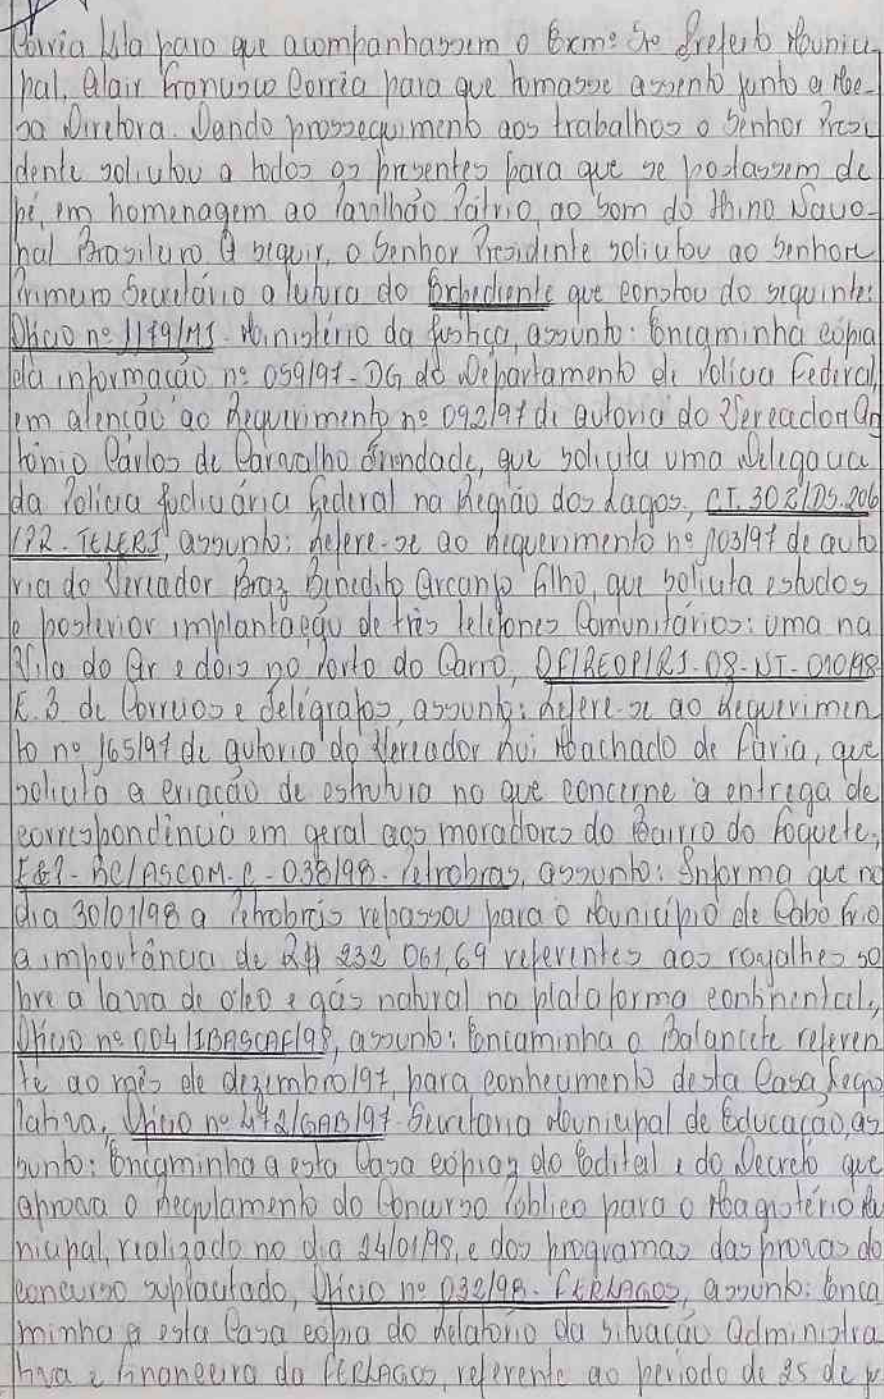 Corrêa Lila para que acompanhassem o Exmº Sr Prefeito Munici
pal, Alair Francisco Corrêa para que tomasse assento junto a Me-
sa Diretora. Dando prosseguimento aos trabalhos o Senhor Presi
dente solicitou a todos os presentes para que se postassem de
pé, em homenagem ao Pavilhão Pátrio, ao som do Hino Nacio-
nal Brasileiro. A seguir, o Senhor Presidente solicitou ao Senhor
Primeiro Secretário a leitura do Expediente que constou do seguinte:
Ofício nº 1179/MJ - Ministério da Justiça, assunto: Encaminha cópia
da informação nº 059/97 - DG do Departamento de Polícia Federal,
em atenção ao Requerimento nº 092/97 de autoria do Vereador An
tônio Carlos de Carvalho Trindade, que solicita uma Delegacia
da Polícia Judiciária Federal na Região dos Lagos, CT. 302/DS.206
/PR - TELERJ, assunto: Refere-se ao Requerimento nº 103/97 de auto
ria do Vereador Braz Benedito Arcanjo Filho, que solicita estudos
e posterior implantação de três telefones Comunitários: uma na
Vila do Ar e dois no Porto do Carro, OF/REOP/RJ-08-NT-010/98
E.B de Correios e Telégrafos, assunto: Refere-se ao Requerimen
to nº 165/97 de autoria do Vereador Rui Machado de Faria, que
solicita a criação de estrutura no que concerne a entrega de
correspondência em geral aos moradores do Bairro do Foguete,
E&P - BC/ASCOM-R-038/98 - Petrobras, assunto: Informa que no
dia 30/01/98 a Petrobrás repassou para o Município de Cabo Frio
a importância de R$ 232 061,69 referentes aos royalties so
bre a lavra de óleo e gás natural na plataforma continental,
Ofício nº 004/IBASCAF/98, assunto: Encaminha o Balancete referen
te ao mês de dezembro/97, para conhecimento desta Casa Legis
lativa, Ofício nº 472/GAB/97 - Secretaria Municipal de Educação, as
sunto: Encaminha a esta Casa cópias do Edital e do Decreto que
aprova o Regulamento do Concurso Público para o Magistério Mu
nicipal, realizado no dia 24/01/98, e dos programas das provas do
concurso supracitado, Ofício nº 032/98 - FERLAGOS, assunto: Enca
minha a esta Casa cópia do Relatório da Situação Administra
tiva e Financeira da FERLAGOS, referente ao período de 25 de